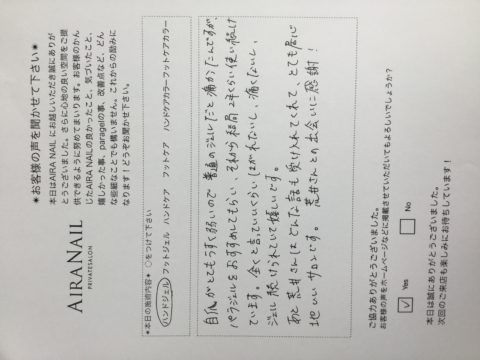 ＊お客様の声を聞かせて下さい＊
本日はAIRA NAIL にお越しいただき誠にありが
とうございました。さらに心地の良い空間をご提
供できるように努めてまいります。お客様のかん
じたAIRA NAILの良かったこと、気づいたこと、
嬉しかった事、paragelの事、改善点など、どん
な些細なことでも構いません。これからの励みに
なります！どうぞお聞かせ下さい。
AIRA NAIL
PRIVATESALON
＊本日の施術内容＊ ○をつけて下さい
ハンドジェル フットジェル ハンドケア フットケア ハンドケアカラー フットケアカラー
自爪がとてもうすく弱いので普通のジェルだと痛かったんですが
パラジェルをおすすめしてもらい、それから結局2年くらい使い続け
ています。全くと言っていいくらいはがれないし、痛くないし、
ジェル続けられていて嬉しいです。
あと荒井さんはどんな話も受け入れてくれて、とても居心
地いいサロンです。 荒井さんとの出会いに感謝！
ご協力ありがとうございました。
お客様の声をホームページなどに掲載させていただいてもよろしいでしょうか？
Yes
No
本日は誠にありがとうございました。
次回のご来店も楽しみにお待ちしています！